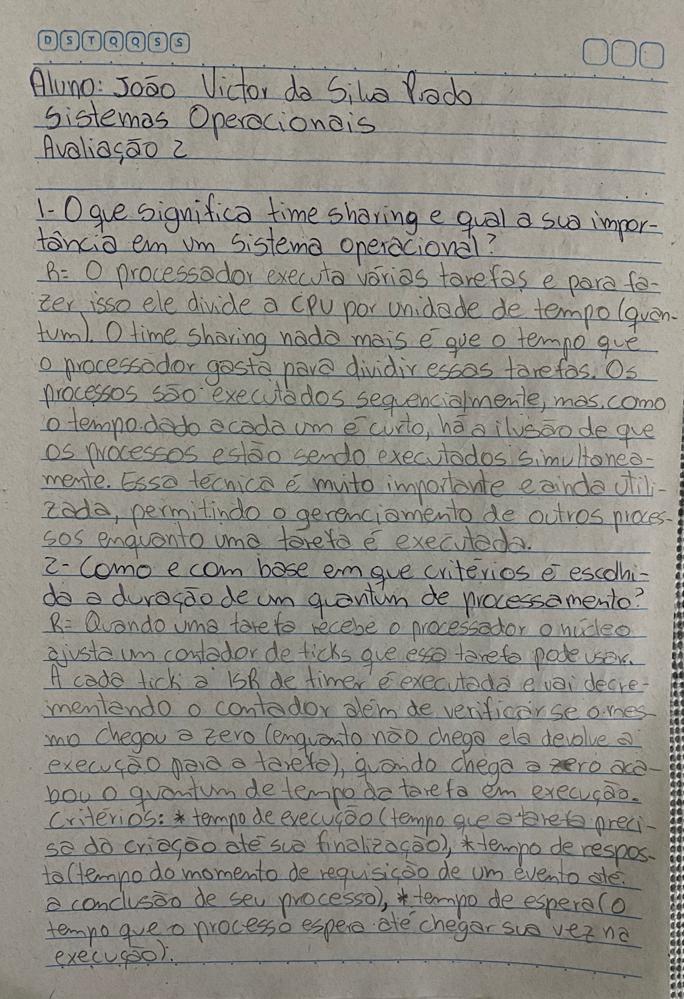 D S T Q Q S S
Aluno: João Victor da Silva Prado
Sistemas Operacionais
Avaliação 2
1- O que significa time sharing e qual a sua impor-
tância em um sistema operacional?
R= O processador executa várias tarefas e para fa-
zer isso ele divide a CPU por unidade de tempo (quan-
tum). O time sharing nada mais é que o tempo que
o processador gasta para dividir essas tarefas. Os
processos são executados sequencialmente, mas, como
o tempo dado a cada um é curto, há a ilusão de que
os processos estão sendo executados simultanea-
mente. Essa técnica é muito importante e ainda utili-
zada, permitindo o gerenciamento de outros proces-
sos enquanto uma tarefa é executada.
2- Como e com base em que critérios é escolhi-
da a duração de um quantum de processamento?
R= Quando uma tarefa recebe o processador o núcleo
ajusta um contador de ticks que essa tarefa pode usar.
A cada tick a ISR de timer é executada e vai decre-
mentando o contador além de verificar se o mes-
mo chegou a zero (enquanto não chega ela devolve a
execução para a tarefa), quando chega a zero aca-
bou o quantum de tempo da tarefa em execução.
Critérios: * tempo de execução (tempo que a tarefa preci-
sa da criação até sua finalização), * tempo de respos-
ta (tempo do momento de requisição de um evento até
a conclusão de seu processo), * tempo de espera (o
tempo que o processo espera até chegar sua vez na
execução).